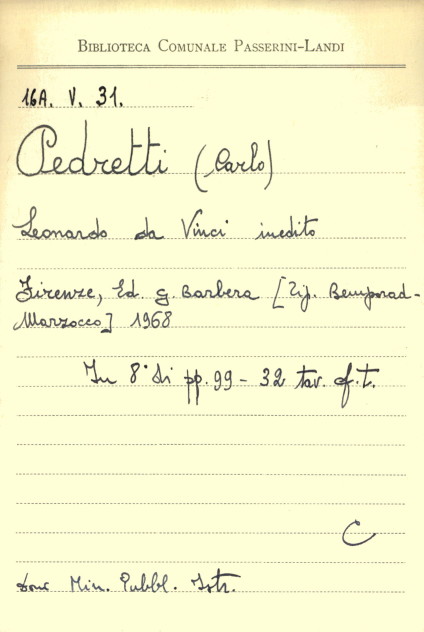 BIBLIOTECA COMUNALE PASSERINI-LANDI
16A. V. 31.
Pedretti (Carlo)
Leonardo da Vinci inedito
Firenze, Ed. G. Barbera [Tip. Bemporad-
Marzocco] 1968
In 8° di pp. 99 - 32 tav. f. t.
C
Dono Min. Pubbl. Istr.